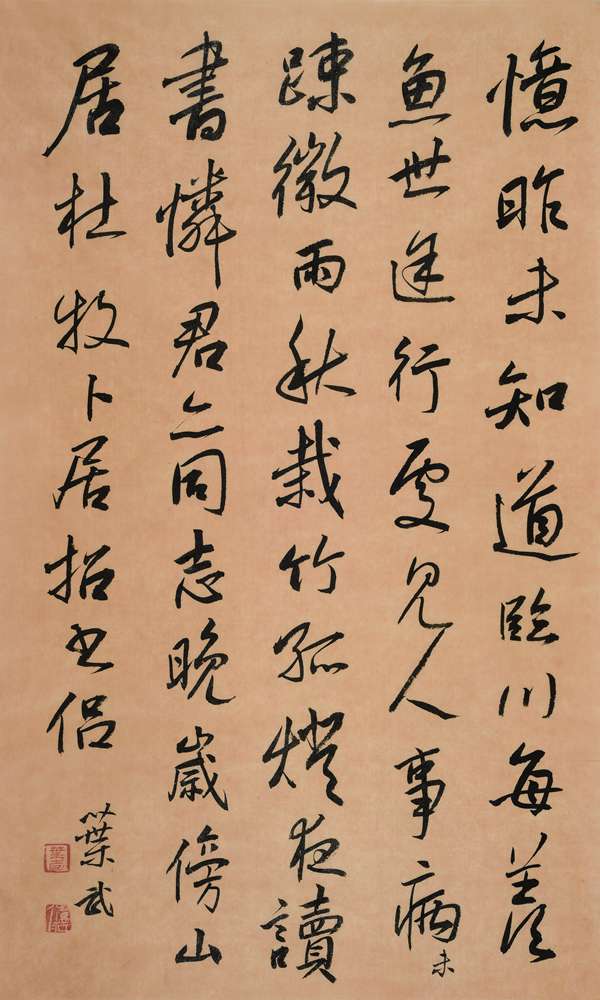 憶昨未知道臨川每羨
魚世途行處見人事病来
踈微雨秋栽竹孤燈夜讀
書憐君亦同志晚歲傍山
居杜牧卜居招书侣
葉武